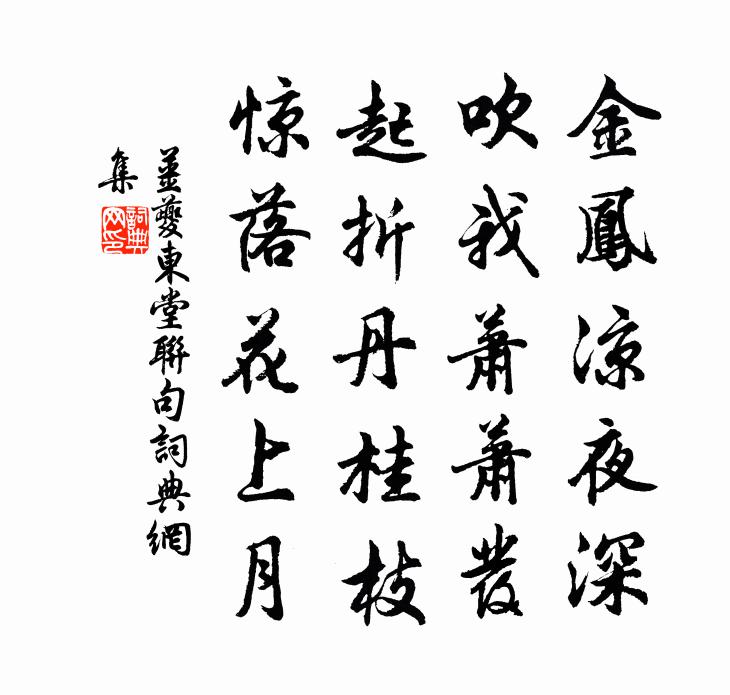 金鳳涼夜深
吹我蕭蕭發
起折丹桂枝
惊落花上月
薑夔東堂聯句詞典網
集
詞典
网印